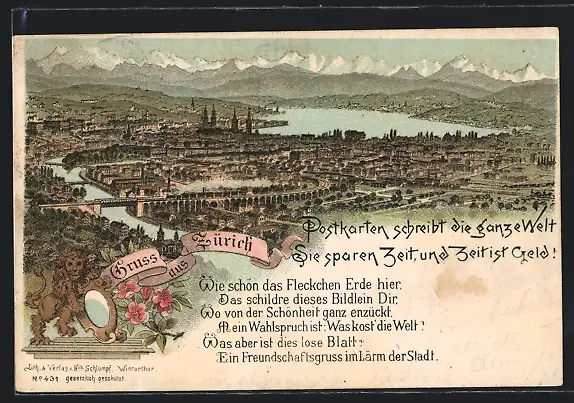 Gruss aus Zürich
Postkarten schreibt die ganze Welt
Sie sparen Zeit, und Zeit ist Geld!
Wie schön das Fleckchen Erde hier,
Das schildre dieses Bildlein Dir,
Wo von der Schönheit ganz enzückt
M. ein Wahlspruch ist: Was kost' die Welt?
Was aber ist dies lose Blatt?
Ein Freundschaftsgruss im Lärm der Stadt.
Lith. & Verlag v. Wilh. Schlumpf, Winterthur
No 431 gesetzlich geschützt.